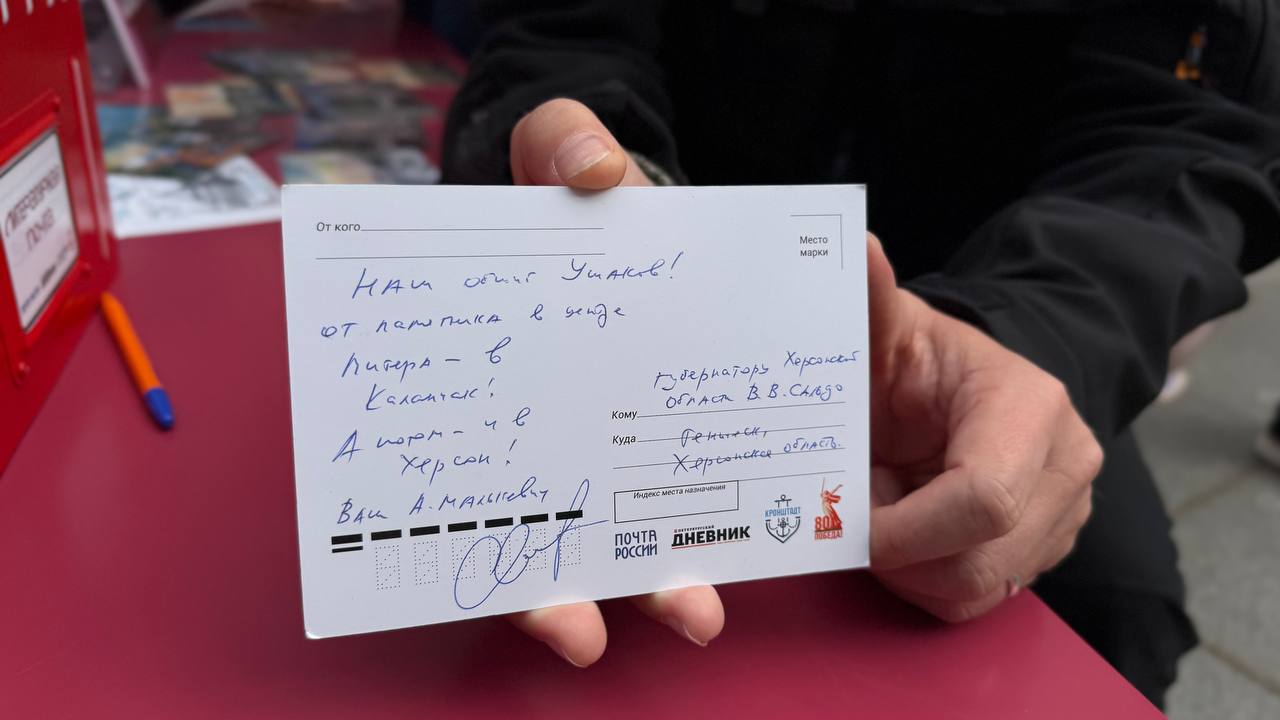 От кого
Место
марки
Наш общий Ушаков!
от памятника в
Питера – в
Каланчак!
А потом – и в
Херсон!
Ваш А. Малькевич
Губернатору Херсонской
области В.В. Сальдо
Кому
Куда Геническ,
Херсонская область.
Индекс места назначения
ПОЧТА
РОССИИ
ПЕТЕРБУРГСКИЙ
ДНЕВНИК
КРОНШТАДТ
80
ПОБЕДА!
ПОЧТА